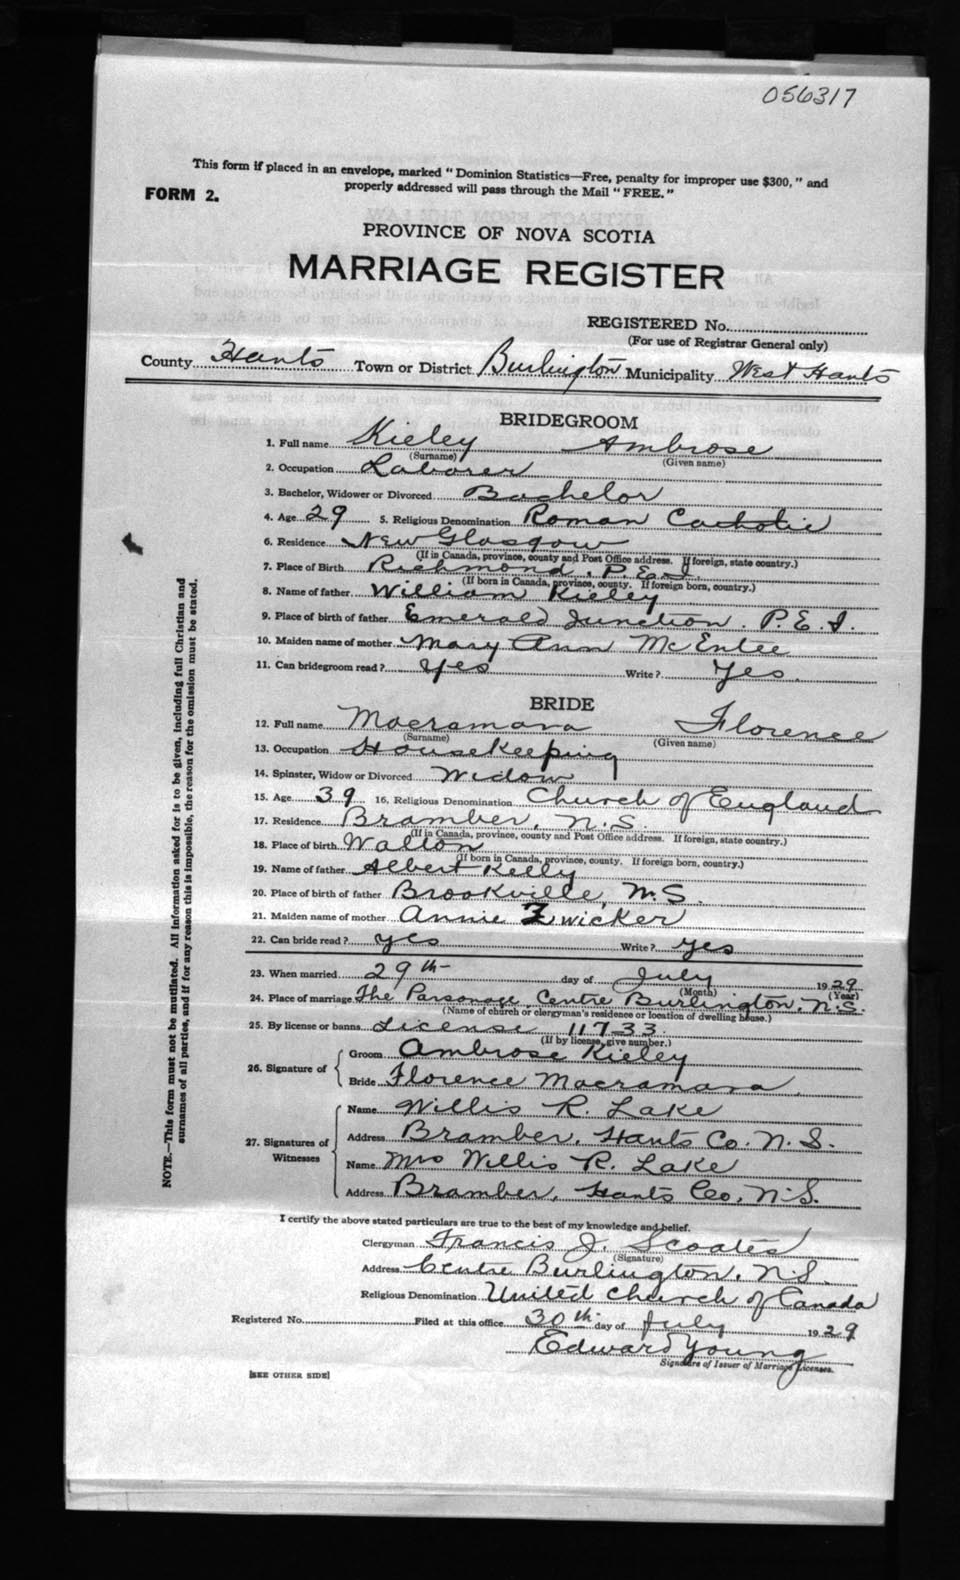 056317
This form if placed in an envelope, marked "Dominion Statistics—Free, penalty for improper use $300," and
properly addressed will pass through the Mail "FREE."
FORM 2.
PROVINCE OF NOVA SCOTIA
MARRIAGE REGISTER
REGISTERED No.
(For use of Registrar General only)
County Hants Town or District Burlington Municipality West Hants
BRIDEGROOM
1. Full name Kieley Ambrose
(Surname) (Given name)
2. Occupation Laborer
3. Bachelor, Widower or Divorced Bachelor
4. Age 29 5. Religious Denomination Roman Catholic
6. Residence New Glasgow
(If in Canada, province, county and Post Office address. If foreign, state country.)
7. Place of Birth Richmond P.E.I.
(If born in Canada, province, county. If foreign born, country.)
8. Name of father William Kieley
9. Place of birth of father Emerald Junction. P.E.I.
10. Maiden name of mother Mary Ann McEntee
11. Can bridegroom read? Yes Write? Yes.
BRIDE
12. Full name Macramara Florence
(Surname) (Given name)
13. Occupation Housekeeping
14. Spinster, Widow or Divorced Widow
15. Age 39 16. Religious Denomination Church of England
17. Residence Bramber, N.S.
(If in Canada, province, county and Post Office address. If foreign, state country.)
18. Place of birth Walton
(If born in Canada, province, county. If foreign born, country.)
19. Name of father Albert Kelly
20. Place of birth of father Brookville, N.S.
21. Maiden name of mother Annie Zwicker
22. Can bride read? yes Write? yes
23. When married 29th day of July 1929
(Month) (Year)
24. Place of marriage The Parsonage, Centre Burlington, N.S.
(Name of church or clergyman's residence or location of dwelling house.)
25. By license or banns License 11733.
(If by license, give number.)
26. Signature of Groom Ambrose Kieley
Bride Florence Macramara
27. Signatures of Witnesses Name Willis R. Lake
Address Bramber, Hants Co. N.S.
Name Mrs Willis R. Lake
Address Bramber, Hants Co, N.S.
I certify the above stated particulars are true to the best of my knowledge and belief.
Clergyman Francis J. Scoates
(Signature)
Address Centre Burlington, N.S.
Religious Denomination United Church of Canada
Registered No. Filed at this office 30th day of July 1929
Edward Young
Signature of Issuer of Marriage Licenses.
[SEE OTHER SIDE]
NOTE.—This form must not be mutilated. All information asked for is to be given, including full Christian and
surnames of all parties, and if for any reason this is impossible, the reason for the omission must be stated.